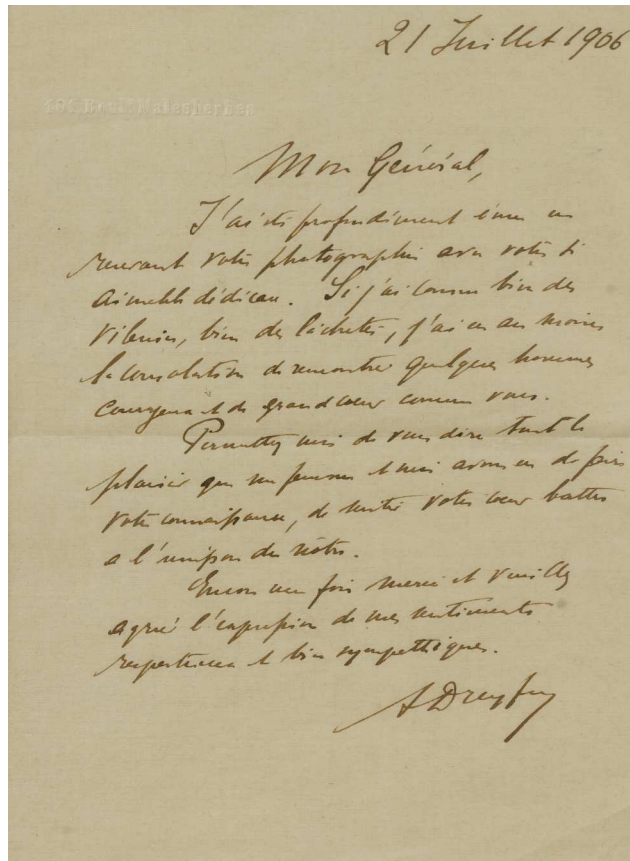 21 Juillet 1906
101, Boul.ᵈ Malesherbes
Mon Général,
J'ai été profondément ému en
recevant votre photographie avec votre si
aimable dédicace. Si j'ai connu bien des
vilenies, bien des lâchetés, j'ai eu au moins
la consolation de rencontrer quelques hommes
courageux et de grand cœur comme vous.
Permettez moi de vous dire tout le
plaisir que ma femme et moi avons eu de faire
votre connaissance, de sentir votre cœur battre
a l'unisson du nôtre.
Encore une fois merci et veuillez
agréer l'expression de mes sentiments
respectueux et bien sympathiques.
A Dreyfus